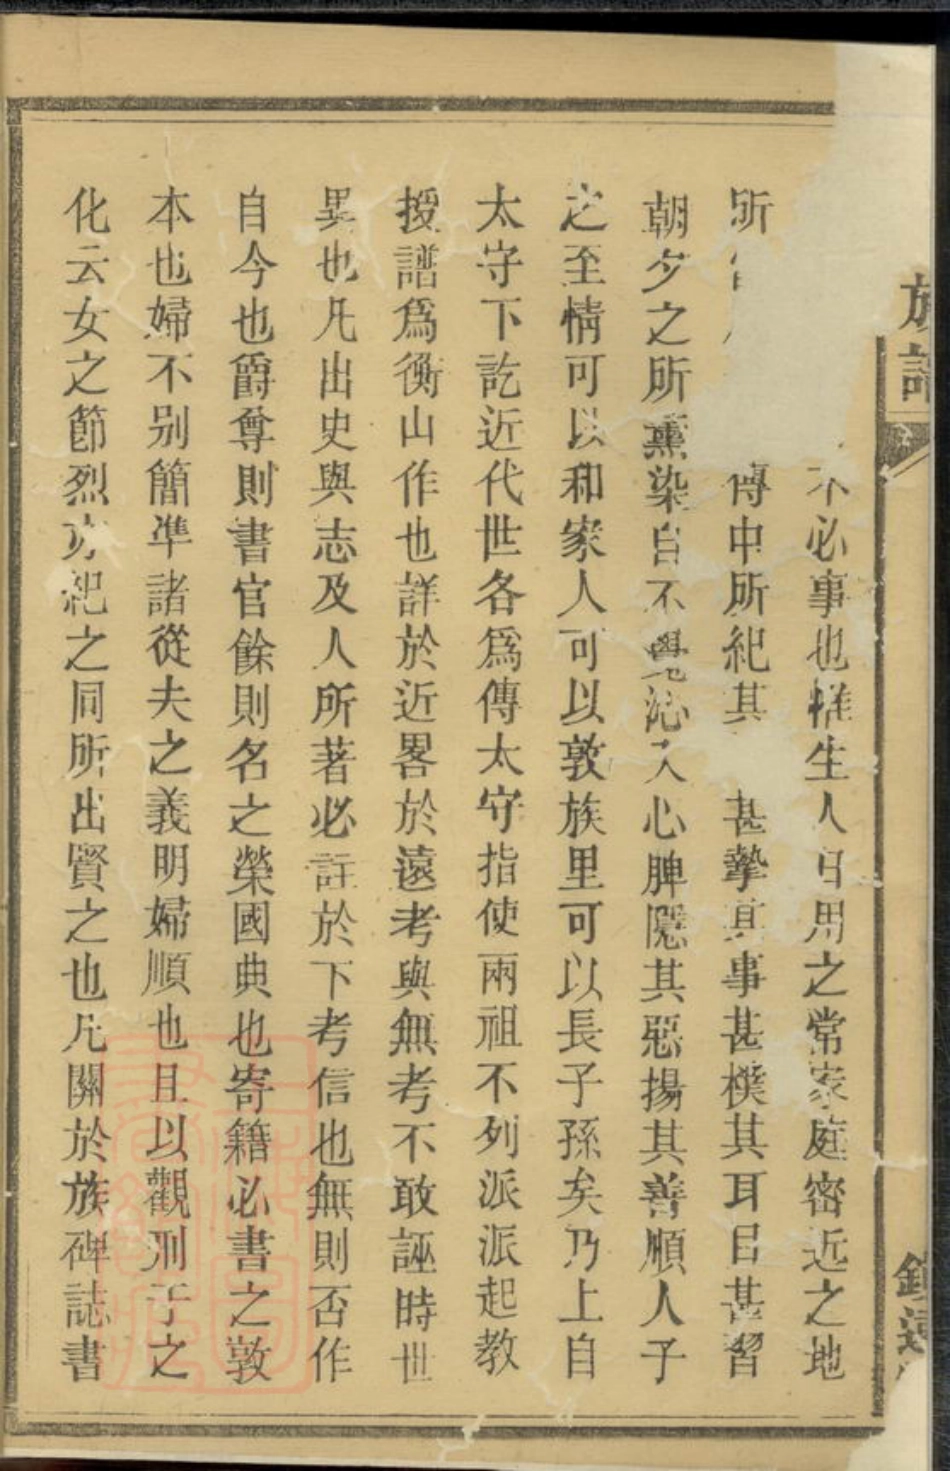 族譜
不必事也惟生人日用之常家庭密近之地
所
傳中所紀其
甚摯其事甚樸其耳目甚習
朝夕之所薰染自不覺沁人心脾隱其惡揚其善順人子
之至情可以和家人可以敦族里可以長子孫矣乃上自
太守下訖近代世各爲傳太守指使兩祖不列派派起教
授譜爲衡山作也詳於近畧於遠考與無考不敢誣時世
異也凡出史與志及人所著必註於下考信也無則否作
自今也爵尊則書官餘則名之榮國典也寄籍必書之敦
本也婦不别簡準諸從夫之義明婦順也且以觀刑于之
化云女之節烈亦紀之同所出賢之也凡關於族碑誌書